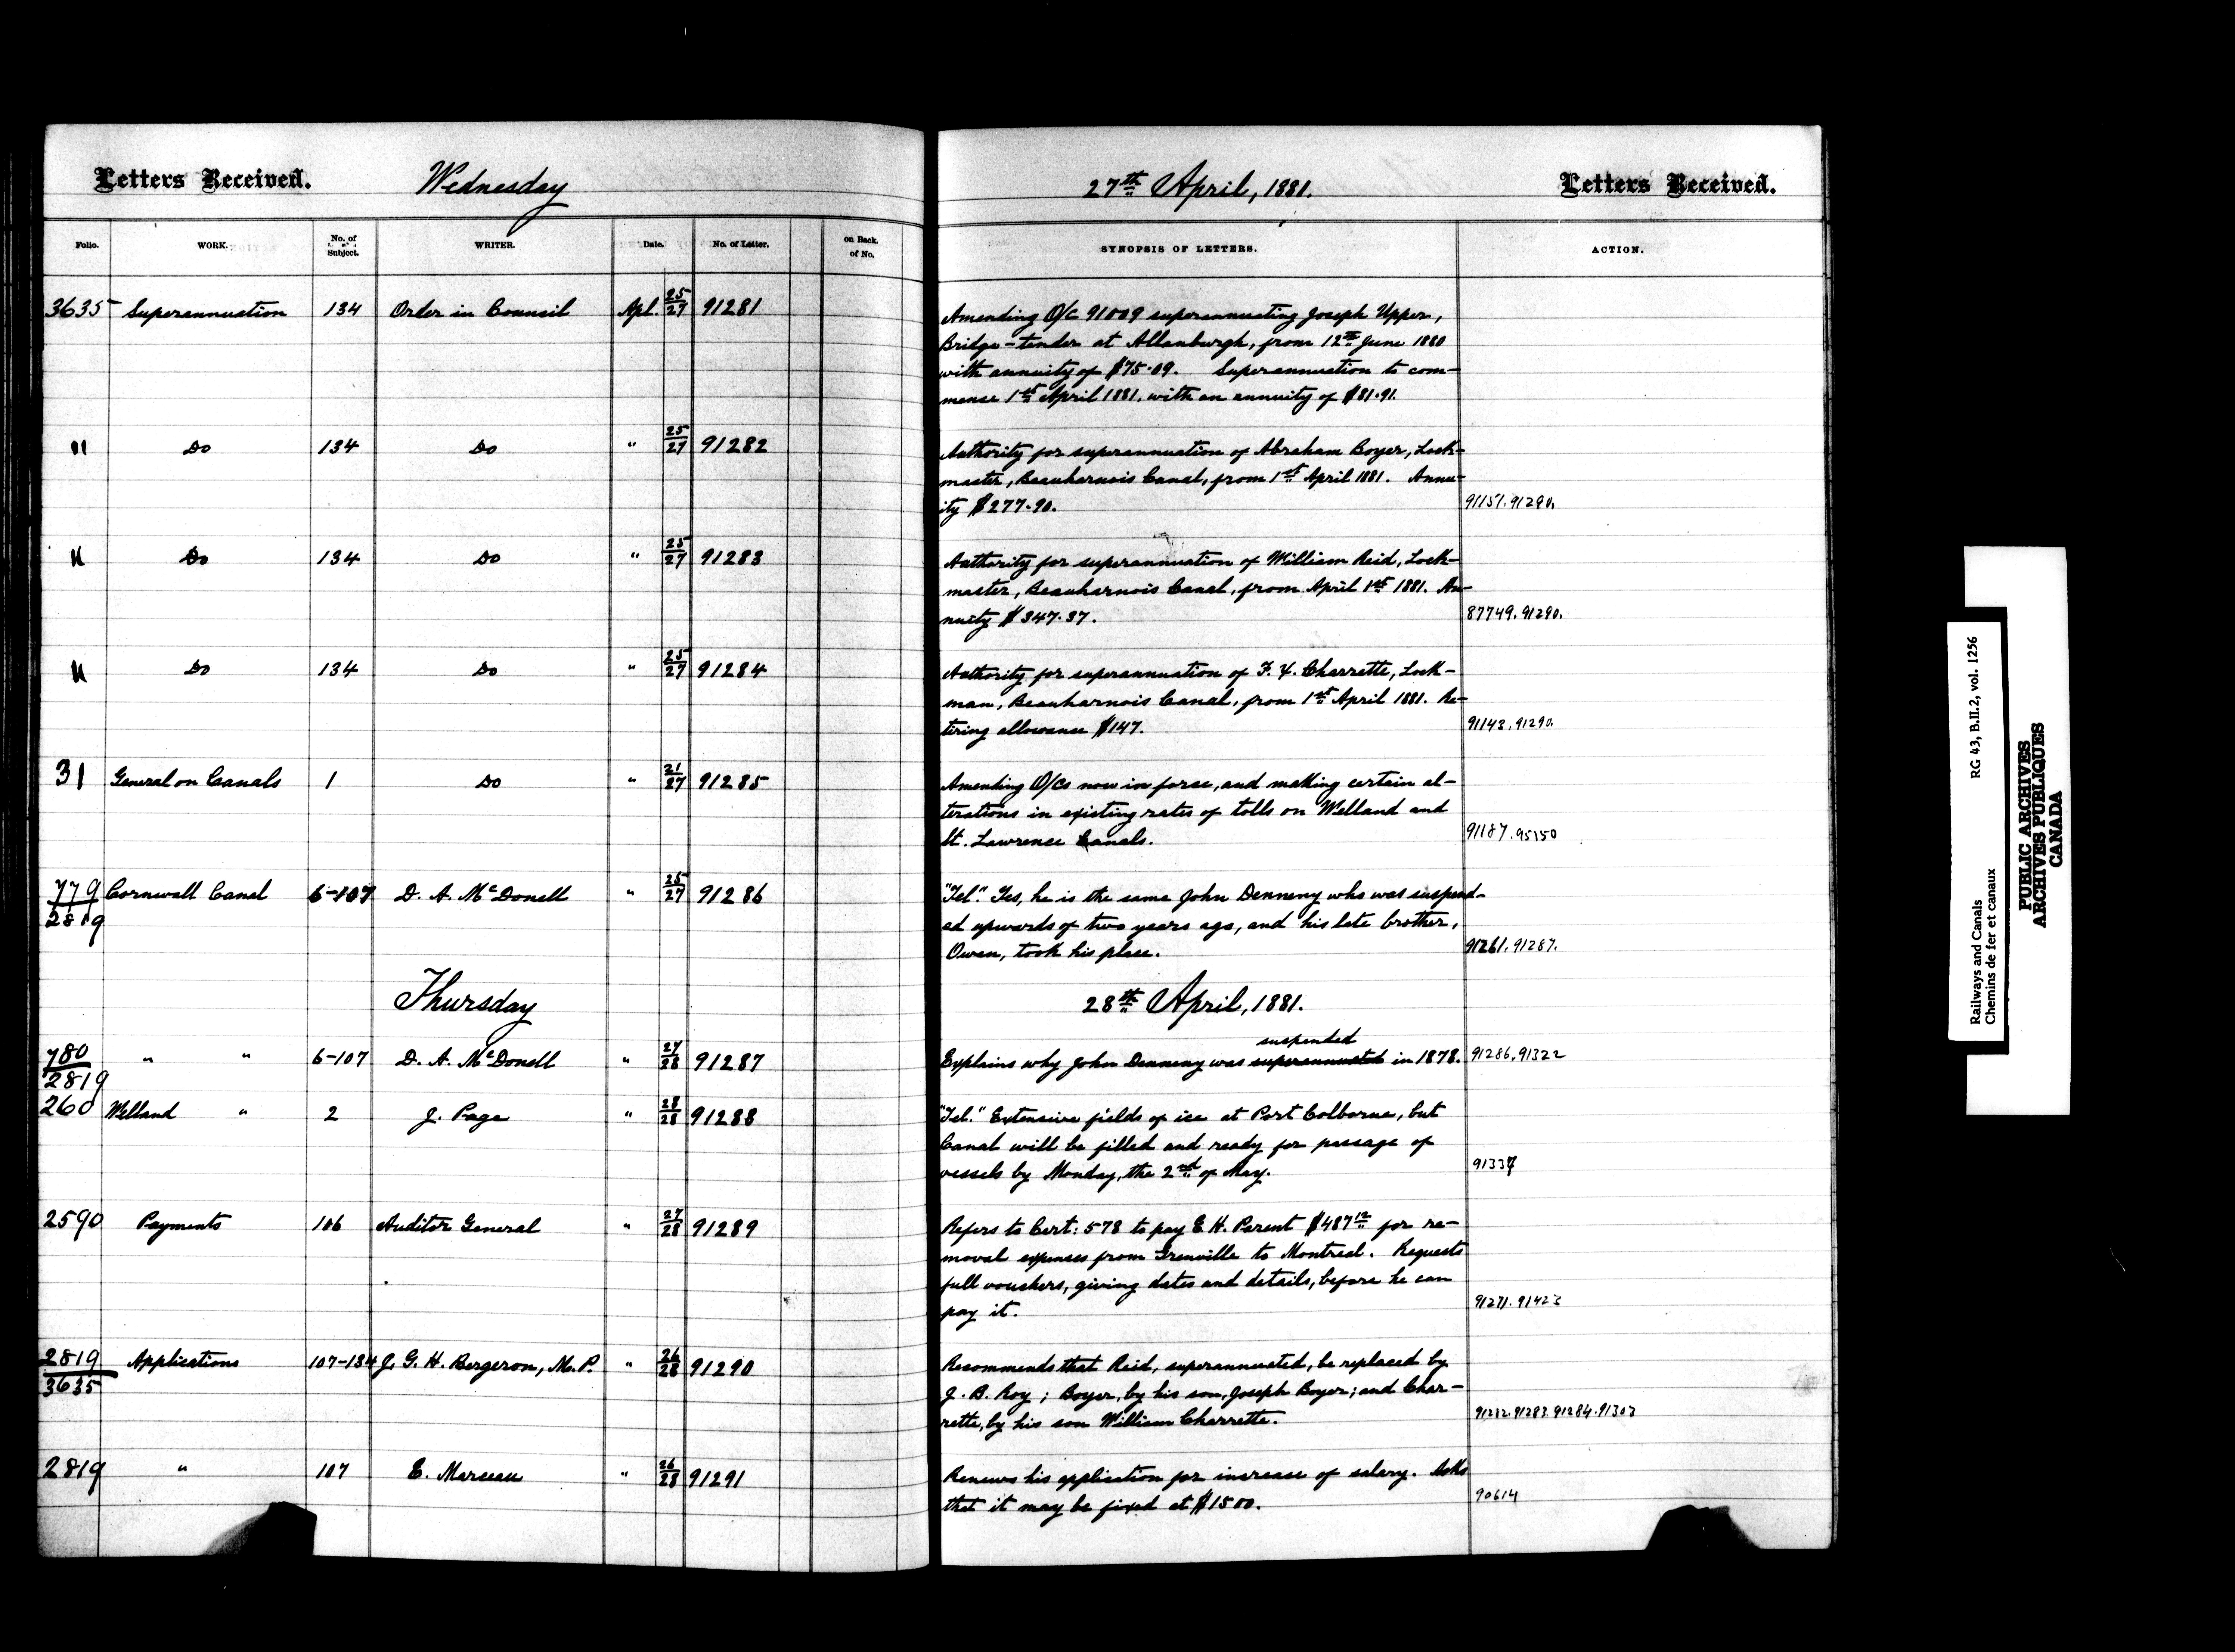 Letters Received. Wednesday 27th April, 1881. Letters Received.
Folio. WORK. No. of Subject. WRITER. Date. No. of Letter. on Back. of No. SYNOPSIS OF LETTERS. ACTION.
3635 Superannuation 134 Order in Council Apl. 25/27 91281 Amending O/C 91009 superannuating Joseph Upper,
Bridge-tender at Allanburgh, from 12th June 1880
with annuity of $75.09. Superannuation to com-
mence 1st April 1881, with an annuity of $81.91.
" Do 134 Do " 25/27 91282 Authority for superannuation of Abraham Boyer, Lock-
master, Beauharnois Canal, from 1st April 1881. Annu-
ity $277.90. 91151.91290.
" Do 134 Do " 25/27 91283 Authority for superannuation of William Reid, Lock-
master, Beauharnois Canal, from April 1st 1881. An-
nuity $347.37. 87749.91290.
" Do 134 Do " 25/27 91284 Authority for superannuation of F. X. Charrette, Lock-
man, Beauharnois Canal, from 1st April 1881. Re-
tiring allowance $147. 91143.91290.
31 General on Canals 1 Do " 21/27 91285 Amending O/Cs now in force, and making certain al-
terations in existing rates of tolls on Welland and
St. Lawrence Canals. 91187.95150
779/2819 Cornwall Canal 6-107 D. A. McDonell " 25/27 91286 "Tel." Yes, he is the same John Denneny who was suspend-
ed upwards of two years ago, and his late brother,
Owen, took his place. 91261.91287.
Thursday 28th April, 1881.
suspended
780/2819 " " 6-107 D. A. McDonell " 27/28 91287 Explains why John Denneny was superannuated in 1878. 91286.91322
260 Welland " 2 J. Page " 28/28 91288 "Tel." Extensive fields of ice at Port Colborne, but
Canal will be filled and ready for passage of
vessels by Monday, the 2nd of May. 91337
2590 Payments 106 Auditor General " 27/28 91289 Refers to Cert: 578 to pay E. H. Parent $487 12 for re-
moval expenses from Grenville to Montreal. Requests
full vouchers, giving dates and details, before he can
pay it. 91271.91423
2819/3635 Applications 107-134 J. G. H. Bergeron, M.P. " 26/28 91290 Recommends that Reid, superannuated, be replaced by
J. B. Roy; Boyer, by his son, Joseph Boyer; and Char-
rette, by his son William Charrette. 91282.91283.91284.91303
2819 " 107 E. Marceau " 26/28 91291 Renews his application for increase of salary. Asks
that it may be fixed at $1500. 90614
Railways and Canals RG 43, B.II.2, vol. 1256
Chemins de fer et canaux
PUBLIC ARCHIVES
ARCHIVES PUBLIQUES
CANADA